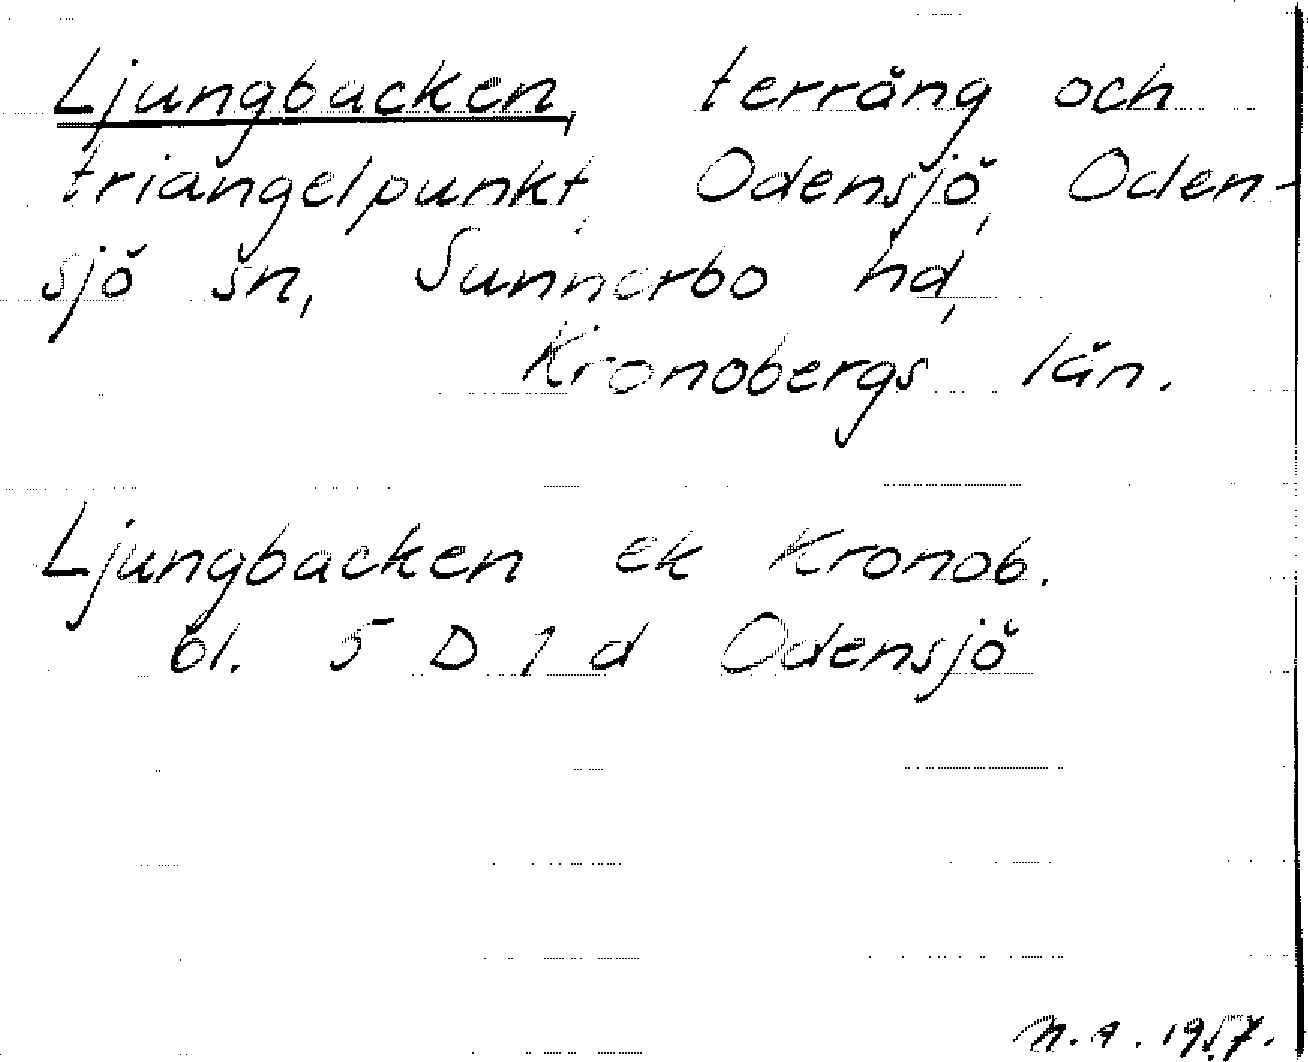 Ljungbacken, terräng och
triangelpunkt, Odensjö, Oden-
sjö sn, Sunnerbo hd,
Kronobergs län.
Ljungbacken ek Kronob.
bl. 5 D 1 d Odensjö
N.A. 1957.